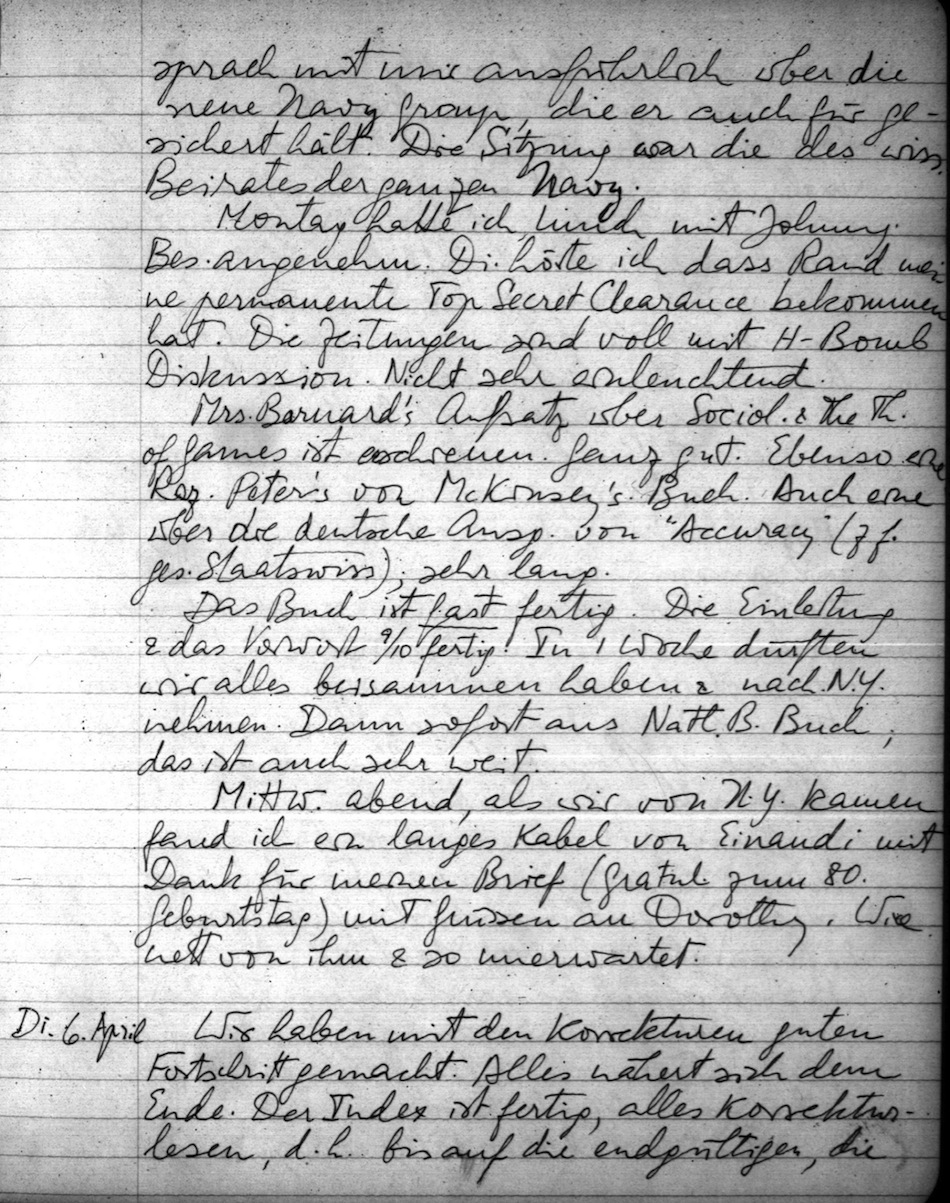 sprach mit mir ausführlich über die
neue Navy Group, die er auch für ge-
sichert hält. Die Sitzung war die des wiss.
Beirates der ganzen Navy.
Montag hatte ich Lunch mit Johnny.
Bes. angenehm. Di. hörte ich dass Rand mei-
ne permanente Top Secret Clearance bekommen
hat. Die Zeitungen sind voll mit H-Bomb
Diskussion. Nicht sehr einleuchtend.
Mrs. Barnard's Aufsatz über Sociol. & the Th.
of Games ist erschienen. Ganz gut. Ebenso eine
Rez. Peter's von McKinsey's Buch. Auch eine
über die deutsche Ausg. von "Accuracy" (Z f.
ges. Staatswiss); sehr lang.
Das Buch ist fast fertig. Die Einleitung
& das Vorwort 9/10 fertig. In 1 Woche dürften
wir alles beisammen haben & nach N.Y.
nehmen. Dann sofort ans Natl. B. Buch;
das ist auch sehr weit.
Mittw. abend, als wir von N.Y. kamen
fand ich ein langes Kabel von Einaudi mit
Dank für meinen Brief (Gratul. zum 80.
Geburtstag) mit Grüssen an Dorothy. Wie
nett von ihm & so unerwartet.
Di. 6. April Wir haben mit den Korrekturen guten
Fortschritt gemacht. Alles nähert sich dem
Ende. Der Index ist fertig, alles Korrektur-
lesen, d.h. bis auf die endgültigen, die